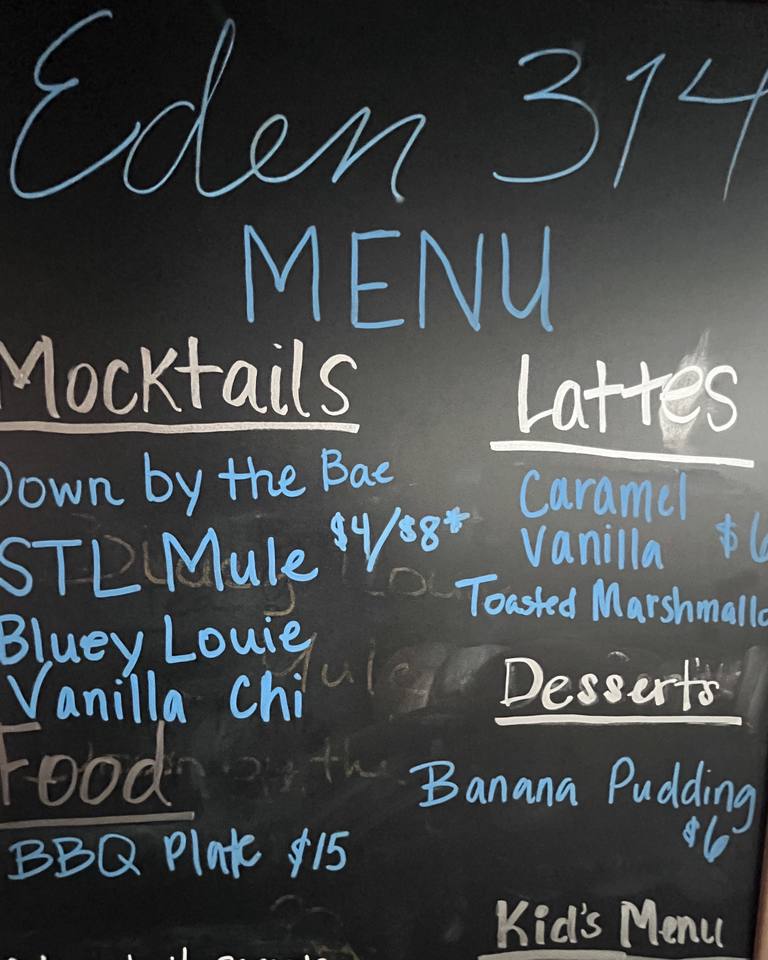 Eden 314
MENU
Mocktails
Down by the Bae
STL Mule $4/$8*
Bluey Louie
Vanilla Chi
Food
BBQ Plate $15
Lattes
Caramel
Vanilla $6
Toasted Marshmallo
Desserts
Banana Pudding
$6
Kid's Menu